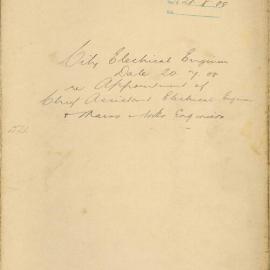 City Electrical Engineer
Date 20 7 08
re Appointment of
Chief Assistant Electrical Engineer
& Mains Engineer